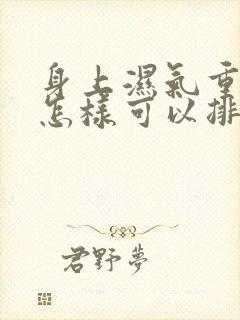 身上濕氣重
怎樣可以排
君野夢